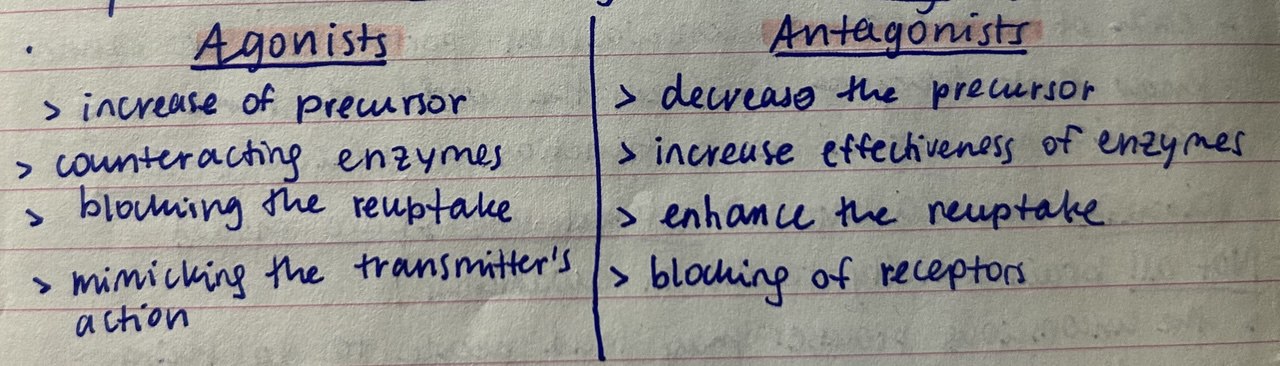 Agonists
> increase of precursor
> counteracting enzymes
> blocking the reuptake
> mimicking the transmitter's
action
Antagonists
> decrease the precursor
> increase effectiveness of enzymes
> enhance the reuptake
> blocking of receptors